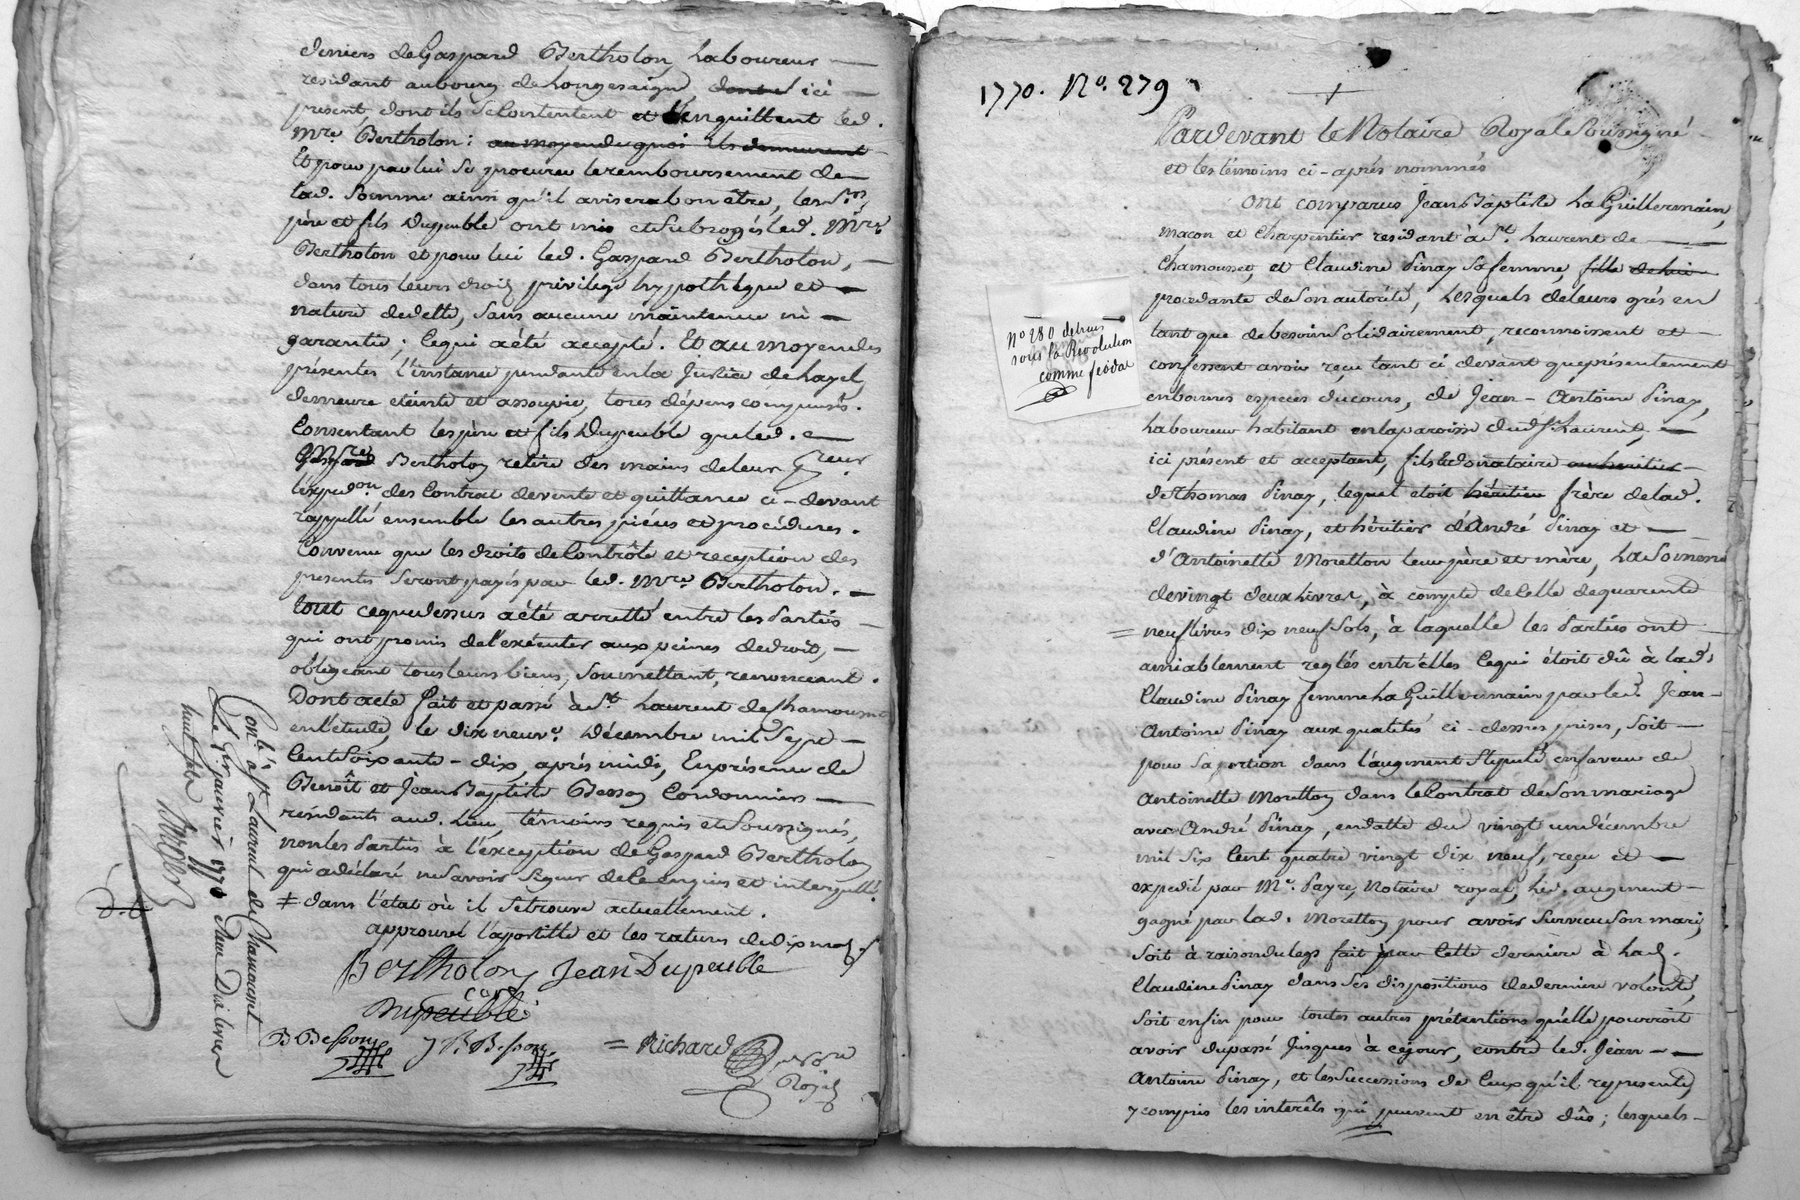 deniers de Gaspard Bertholon, Laboureur
residant au bourg de Longesaigne, ici
present, dont ils se contentent et en quittent led.
Mre. Bertholon : au moyen du quoi ils demeurent
Et pour par lui se procurer le remboursement de
lad. somme ainsi qu'il avisera bon être, les Srs.
père et fils Dupeuble ont mis et subrogés led. Mre.
Bertholon et pour lui led. Gaspard Bertholon,
dans tous leurs droits privilege hypothèque et
nature de dette, sans aucune maintenue ni
garantie ; ce qui a été accepté. Et au moyen des
présentes l'instance pendante en la Justice de
demeure éteinte et assoupie, tous dépens compensés.
Consentant les père et fils Dupeuble que led.
Mre Bertholon retire des mains de leur Preur
l'expedon. des contrat de vente et quittance ci-devant
rappellé ensemble les autres pièces et procédures.
Convenu que les droits de Contrôle et reception des
presentes seront payés par led. Mre. Bertholon.
tout ce que dessus a été arretté entre les Parties
qui ont promis de l'exécuter aux peines de droit,
obligeant tous leurs biens, soumettant, renonceant.
Dont acte fait et passé à St. Laurent de Chamousset
en l'étude, le dix neuf. Décembre mil sept
Cent soixante-dix, après midi, En présence de
Benoît et Jean Baptiste Besson Cordonniers
résidants aud. lieu, témoins requis et soussignés,
non les Parties à l'exception de Gaspard Bertholon
qui a déclaré ne savoir signer de ce enquis et interpellé.
‡ dans l'état où il se trouve actuellement.
approuvé l'apostille et les ratures de dix mots.
Bertholon Jean Dupeuble
curé
Dupeuble
B Besson J B Besson = Richard
Royal
Conlé. à St Laurent de Chamousset
Le 1er. janvier 1771 Reçu Dix livres
huit sols
1770. No. 279
Pardevant le Notaire Royal soussigné
et les témoins ci-après nommés
ont comparus Jean Baptiste La Guillermain,
macon et charpentier residant à St. Laurent de
Chamousset, et Claudine Pinay sa femme, fille de lui
procedante de son autorité, Lesquels de leurs grés en
tant que de besoin solidairement, reconnoissent et
confessent avoir reçu tant ci devant que présentement
en bonnes especes du cours, de Jean-Antoine Pinay,
Laboureur habitant en la paroisse dud St. Laurent,
ici présent et acceptant, fils et donataire
de Thomas Pinay, lequel etoit héritier frère de lad.
Claudine Pinay, et héritier d'André Pinay et
d'Antoinette Moretton leur père et mère, La somme
de vingt deux Livres, à compte de celle de quarente
= neuf livres dix neuf sols, à laquelle les Parties ont
amiablement reglés entr'elles ce qui étoit dû à lad.
Claudine Pinay femme La Guillermain par led. Jean
Antoine Pinay aux qualités ci-dessus prises, soit
pour sa portion dans l'augment stipulé en faveur de
Antoinette Moretton dans le Contrat de son mariage
avec André Pinay, en datte du vingt un décembre
mil six Cent quatre vingt dix neuf, reçu et
expedié par Me. Payre, Notaire royal, led. augment
gagné par lad. Moretton pour avoir survécu son mari,
soit à raison du legs fait par cette derniere à lad.
Claudine Pinay dans ses dispositions de derniere volonté,
soit enfin pour toutes autres prétentions qu'elle pourroit
avoir du passé jusques à ce jour, contre led. Jean
Antoine Pinay, et les successions de ceux qu'il represente,
y compris les interêts qui peuvent en être dûs ; lesquels
no 280 detruis
sous la Revolution
comme feodal